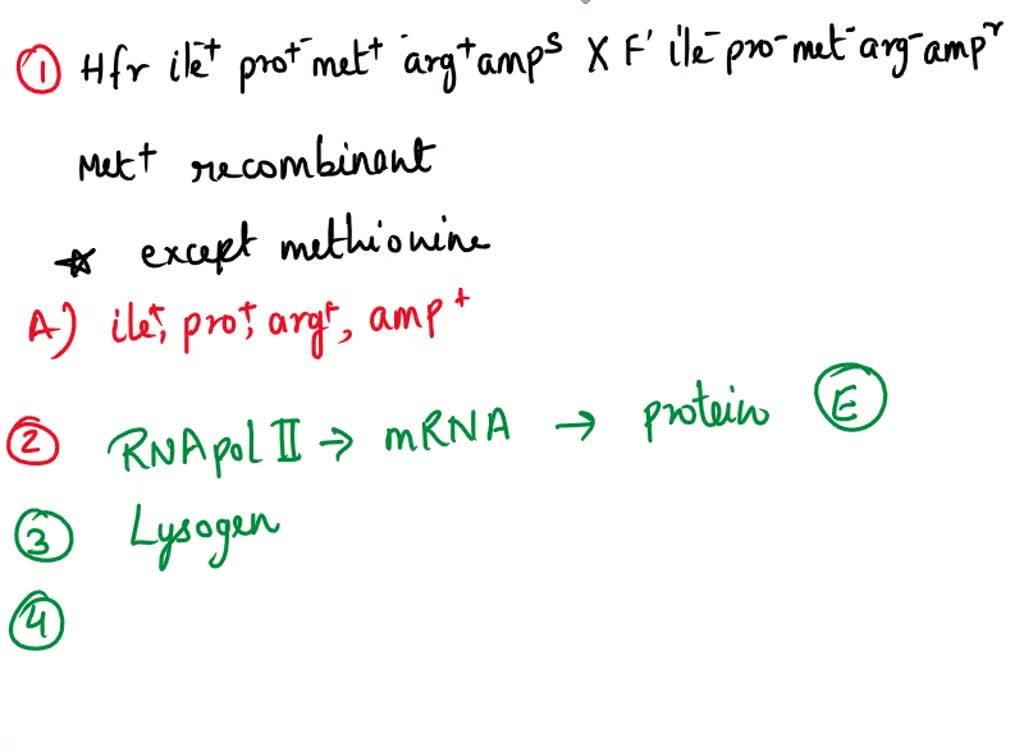 ① Hfr ile⁺ pro⁺⁻ met⁺ ⁻arg⁺ ampˢ X F' ile⁻ pro⁻ met⁻ arg⁻ ampʳ
Met⁺ recombinant
☆ except methionine
A) ile⁺, pro⁺, arg⁺, amp⁺
② RNA pol II → mRNA → protein Ⓔ
③ Lysogen
④